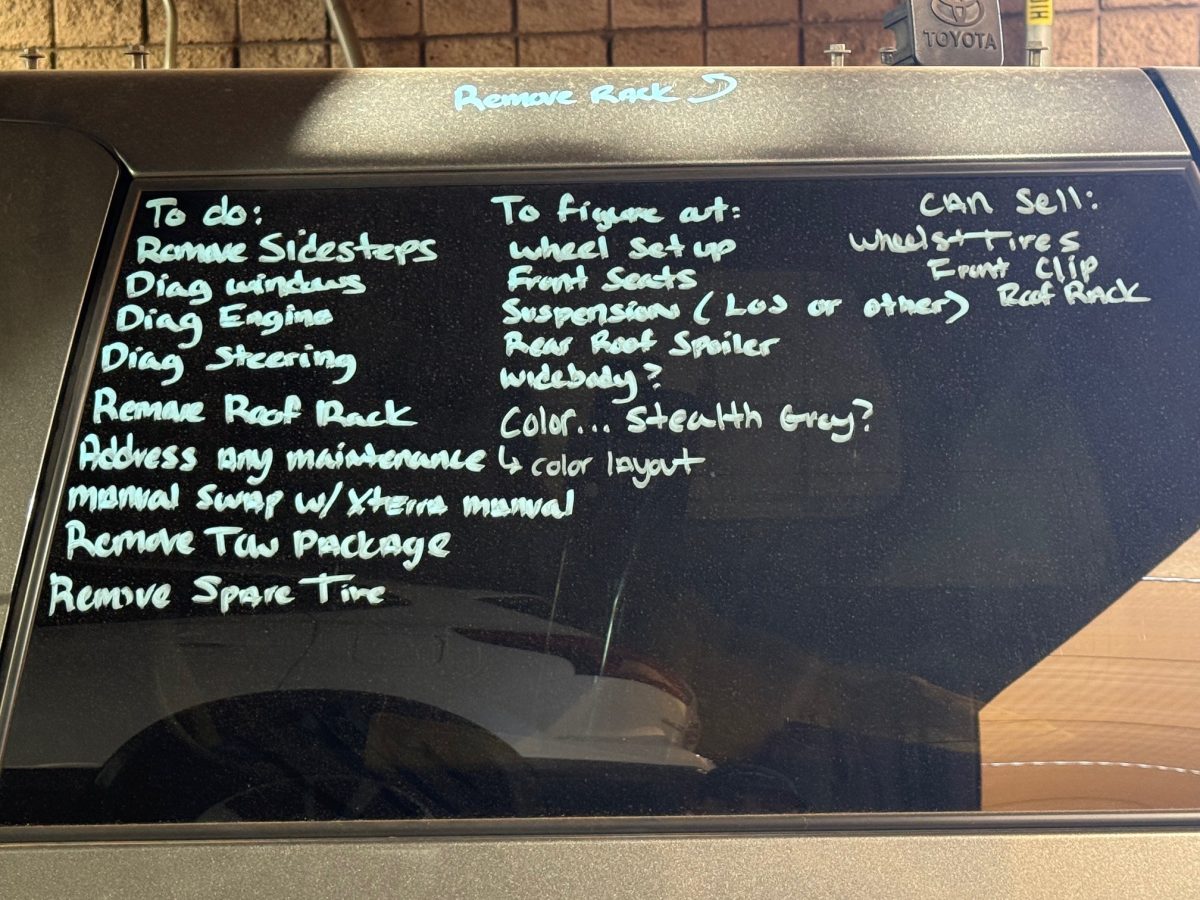 TOYOTA
Remove Rack
To do:
Remove Sidesteps
Diag windows
Diag Engine
Diag Steering
Remove Roof Rack
Address any maintenance
manual swap w/ Xterra manual
Remove Tow package
Remove Spare Tire
To figure out:
wheel set up
Front Seats
Suspension ( or other)
Rear Roof Spoiler
widebody?
Color... Stealth Grey?
↳ color layout
CAN Sell:
Wheels + Tires
Front Clip
Roof Rack